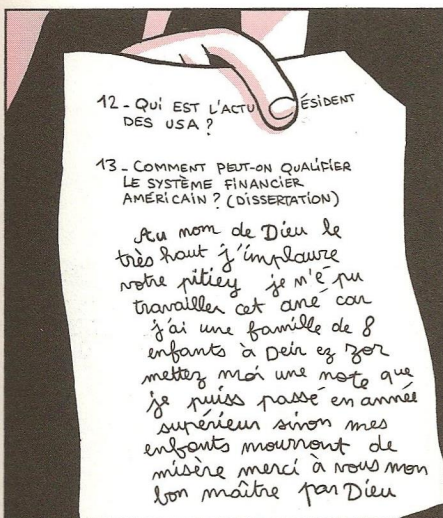 12_ QUI EST L'ACTU ÉSIDENT
DES USA ?
13_ COMMENT PEUT-ON QUALIFIER
LE SYSTÈME FINANCIER
AMÉRICAIN ? (DISSERTATION)
Au nom de Dieu le
très haut j'implaure
votre pitiey je n'é pu
travailler cet ané car
j'ai une famille de 8
enfants à Deir ez zor
mettez moi une note que
je puiss passé en année
supérieur sinon mes
enfants mourront de
misère merci à vous mon
bon maître par Dieu